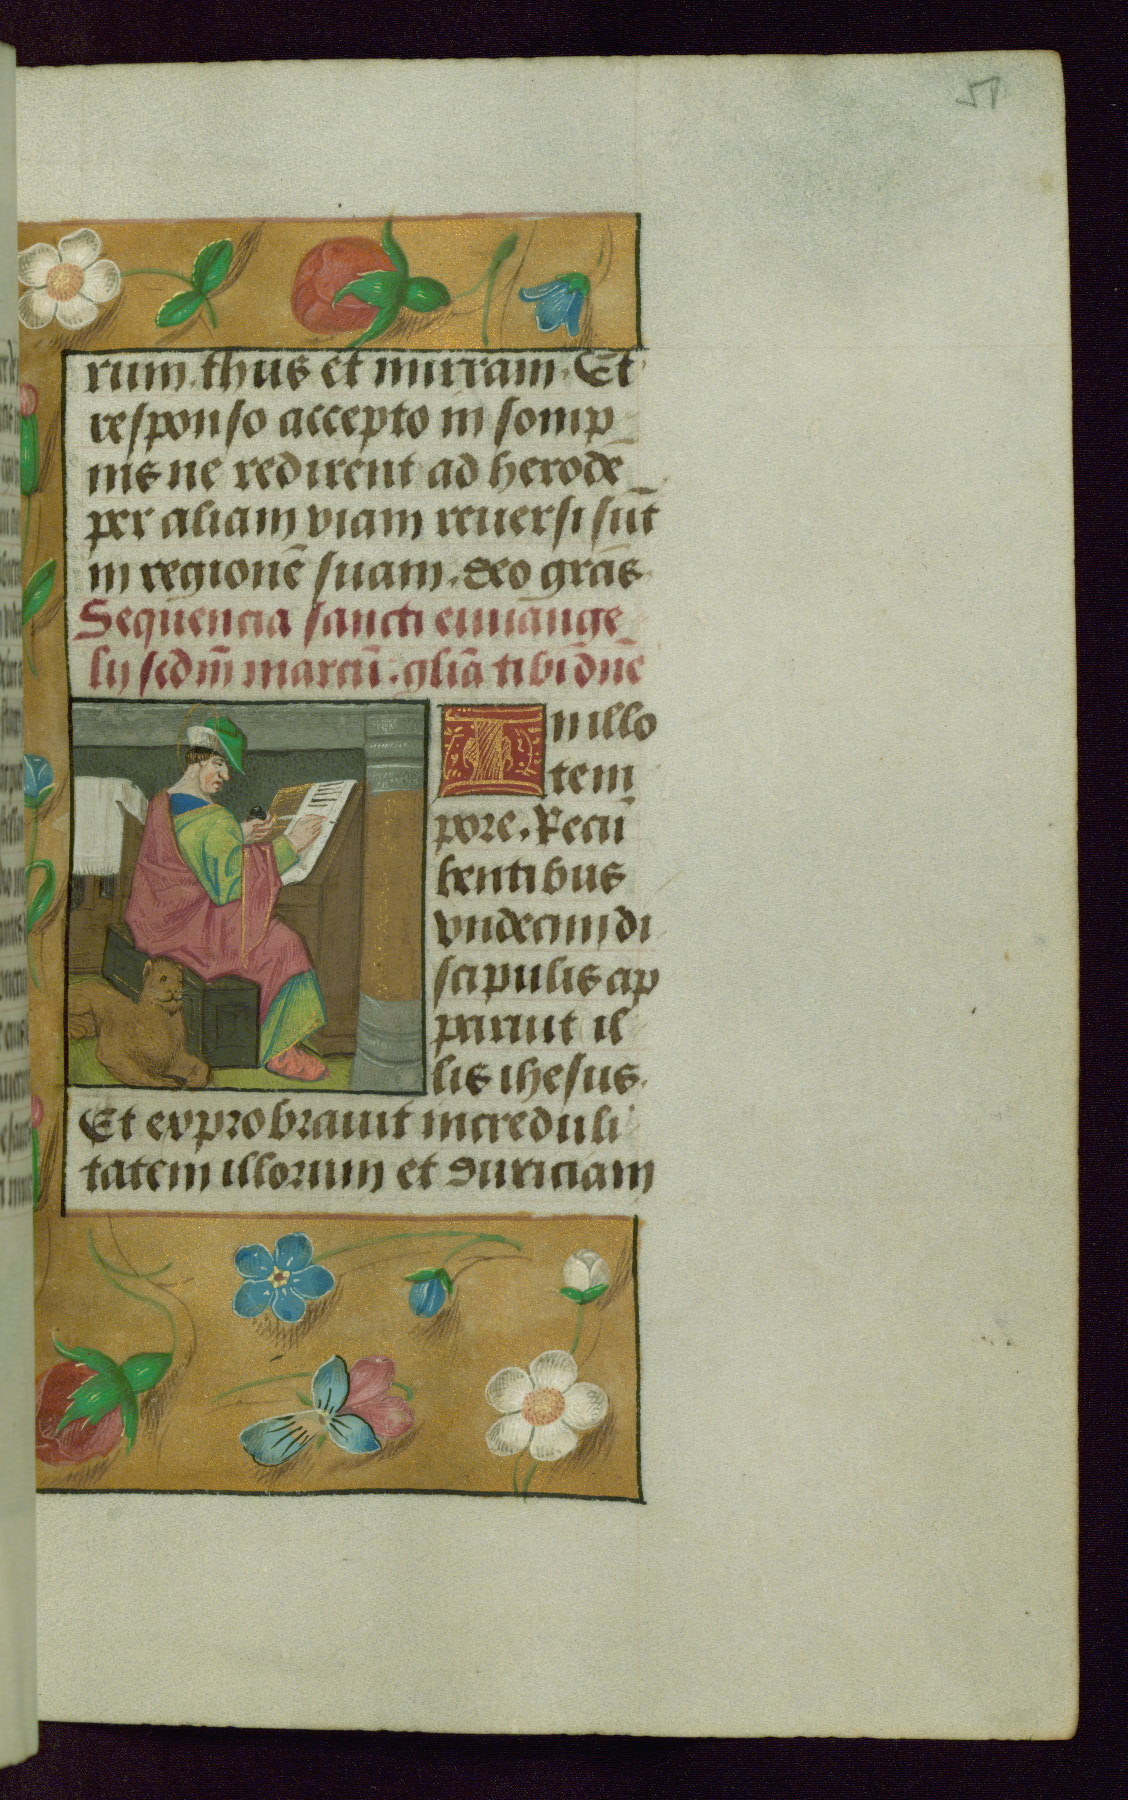 51
rum. thus et mirram. Et
responso accepto in somp
nis ne redirent ad herodē
per aliam viam reuersi sūt
in regionē suam. Deo grās
Sequencia sancti euuange
lij scdm̄ marcū. gliā tibi dn̄e
In illo
tem
pore. Recū
bentibus
vndecim di
scipulis ap
paruit il
lis ihesus.
Et exprobrauit increduli
tatem illorum et duriciam